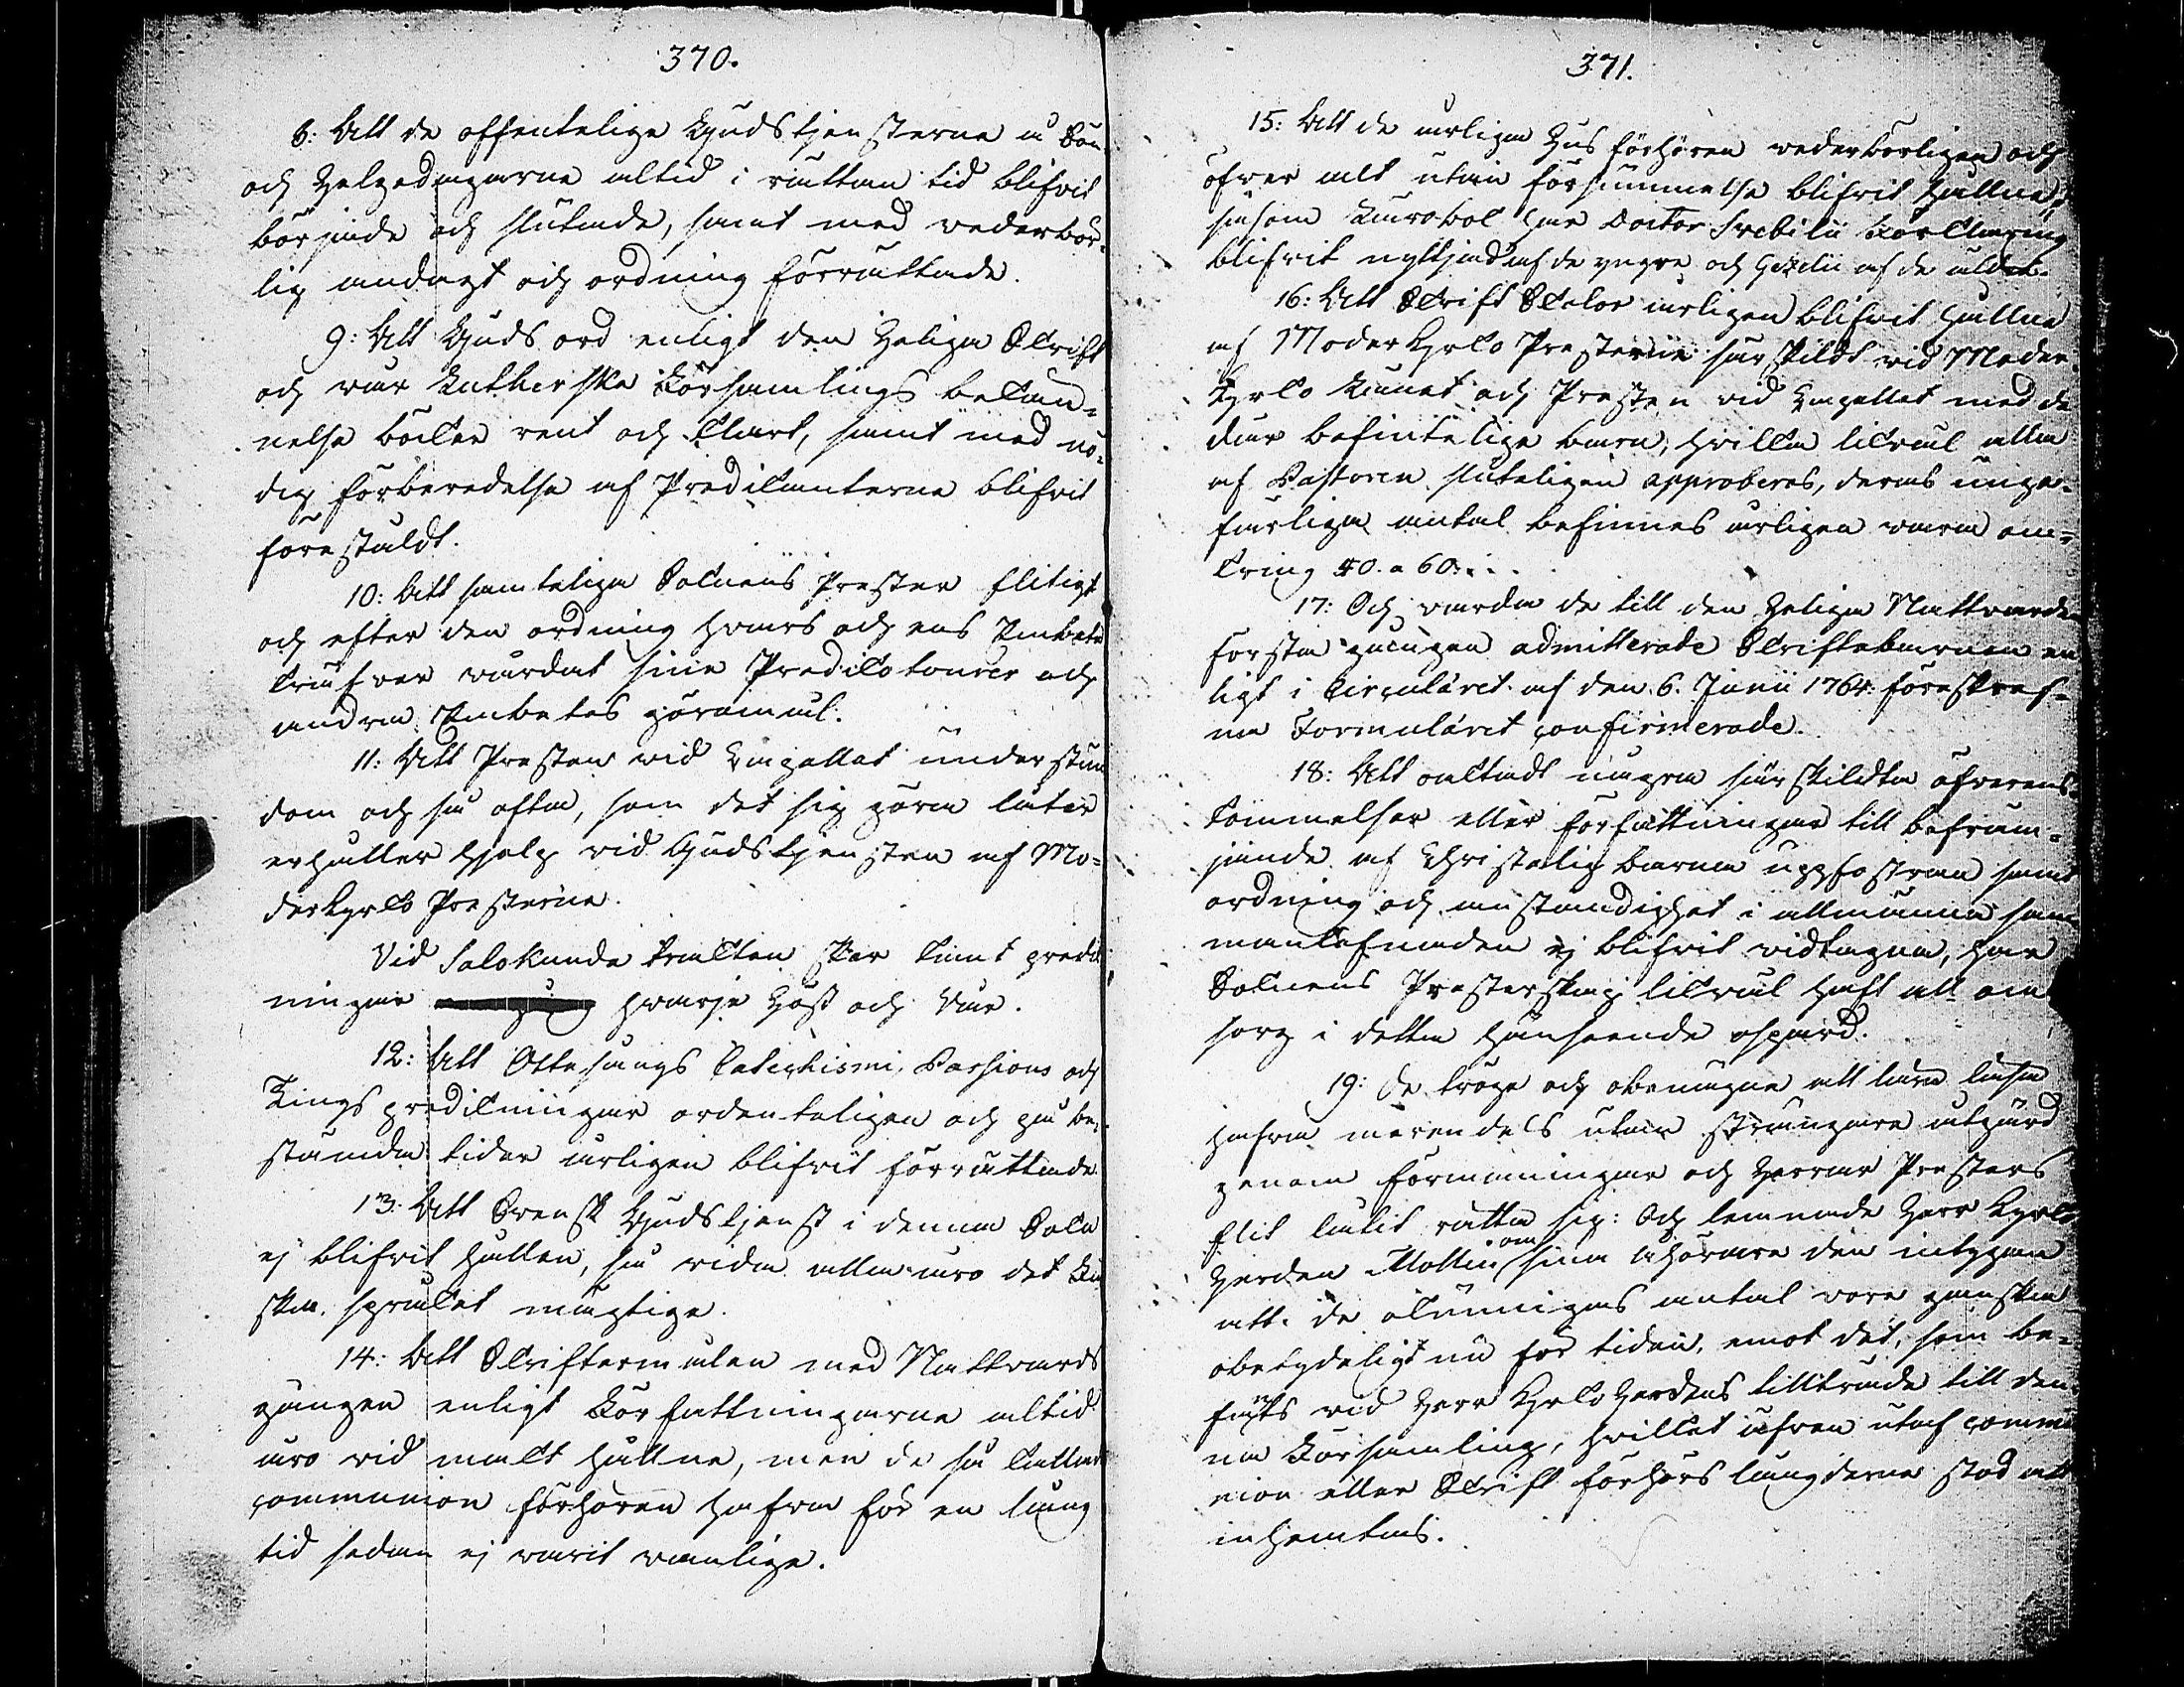 370.
8: Att de offentelige Gudstjensterne å Bön
och Helgedagarne altid i rättan tid blifvit
började och slutade, samt med vederbör-
lig andagt och ordning förrättade.
9: Att Guds ord enligt den Heliga Skrift
och vår Lutherska Församlings bekän-
nelse böcker rent och klart, samt med nö-
dig förberedelse af Predikanterne blifvit
förestäldt.
10: Att samtelige Soknens Prester flitigt
och efter den ordning hvars och ens Embete
kräfver vårdat sine Predikoturer och
andra Embetes göromål.
11: Att Presten vid Capellet understun
dom och så ofta, som det sig göra låter
erhåller hjelp vid Gudstjensten af Mo-
derkyrko Presterne.
Vid Salokunda trakten sker tvänt predik
ningar hvarje Höst och Vår.
12: Att Ottesångs Catechismi, Passions och
Tings predikningar ordenteligen och på be-
stämda tider årligen blifvit förrättade.
13. Att Svensk Gudstjenst i denna Sokn
ej blifvit hållen, så vida alla äro det Fin
ska språket mägtige.
14: Att Skriftermålen med Nattvards
gången enligt Författningarne altid
äro vid makt hållne, men de så kallade
communion förhören hafva för en lång
tid sedan ej varit vanlige.
371.
15: Att de årliga Hus förhören vederbörligen och
öfver alt utan försummelse blifvit hållne,
såsom Lärobok har Doctor Svebilii Förklaring
blifvit nyttjad af de yngre och Gezelii af de äldre.
16: Att Skrift Skolor årligen blifvit hållne
af Moder Kyrko Presterne särskildt vid Moder
Kyrko Rummet och Presten vid Capellet med de
där befintelige barn, hvilka likväl alla
af Pastoren sluteligen approberas, deras unge-
färliga antal befinnes årligen vara om-
kring 50. a 60: . .
17: Och varda de till den Heliga Nattvarden
första gången admitterade Skriftebarnen en
ligt i Circuläret af den 6. Junii 1764. föreskref-
na Formuläret confirmerade.
18: Att oaktadt någre särskildta öfverens-
kommelser eller författningar till befräm-
jande af Christelig barna uppfostran samt
ordning och anständighet i allmänna sam
manlefnaden ej blifvit vidtagna, har
Soknens Presterskap likväl haft all om
sorg i detta hänseende ospard.
19: De tröge och obenägne att lära läsa
hafva merendels utan strängare åtgärd
genom förmaningar och Herrar Presters
flit låtit rätta sig: Och lemnade Herr Kyrko
Herden Mollin om sina åhörare den intygan
att de okunnigas antal vore ganska
obetydeligt nu för tiden, emot det, som be-
fants vid Herr Kyrko Herdens tillträde till den
na Församling, hvilket äfven utaf commu
nion eller Skrift förhörs längderne stod att
inhemtas.